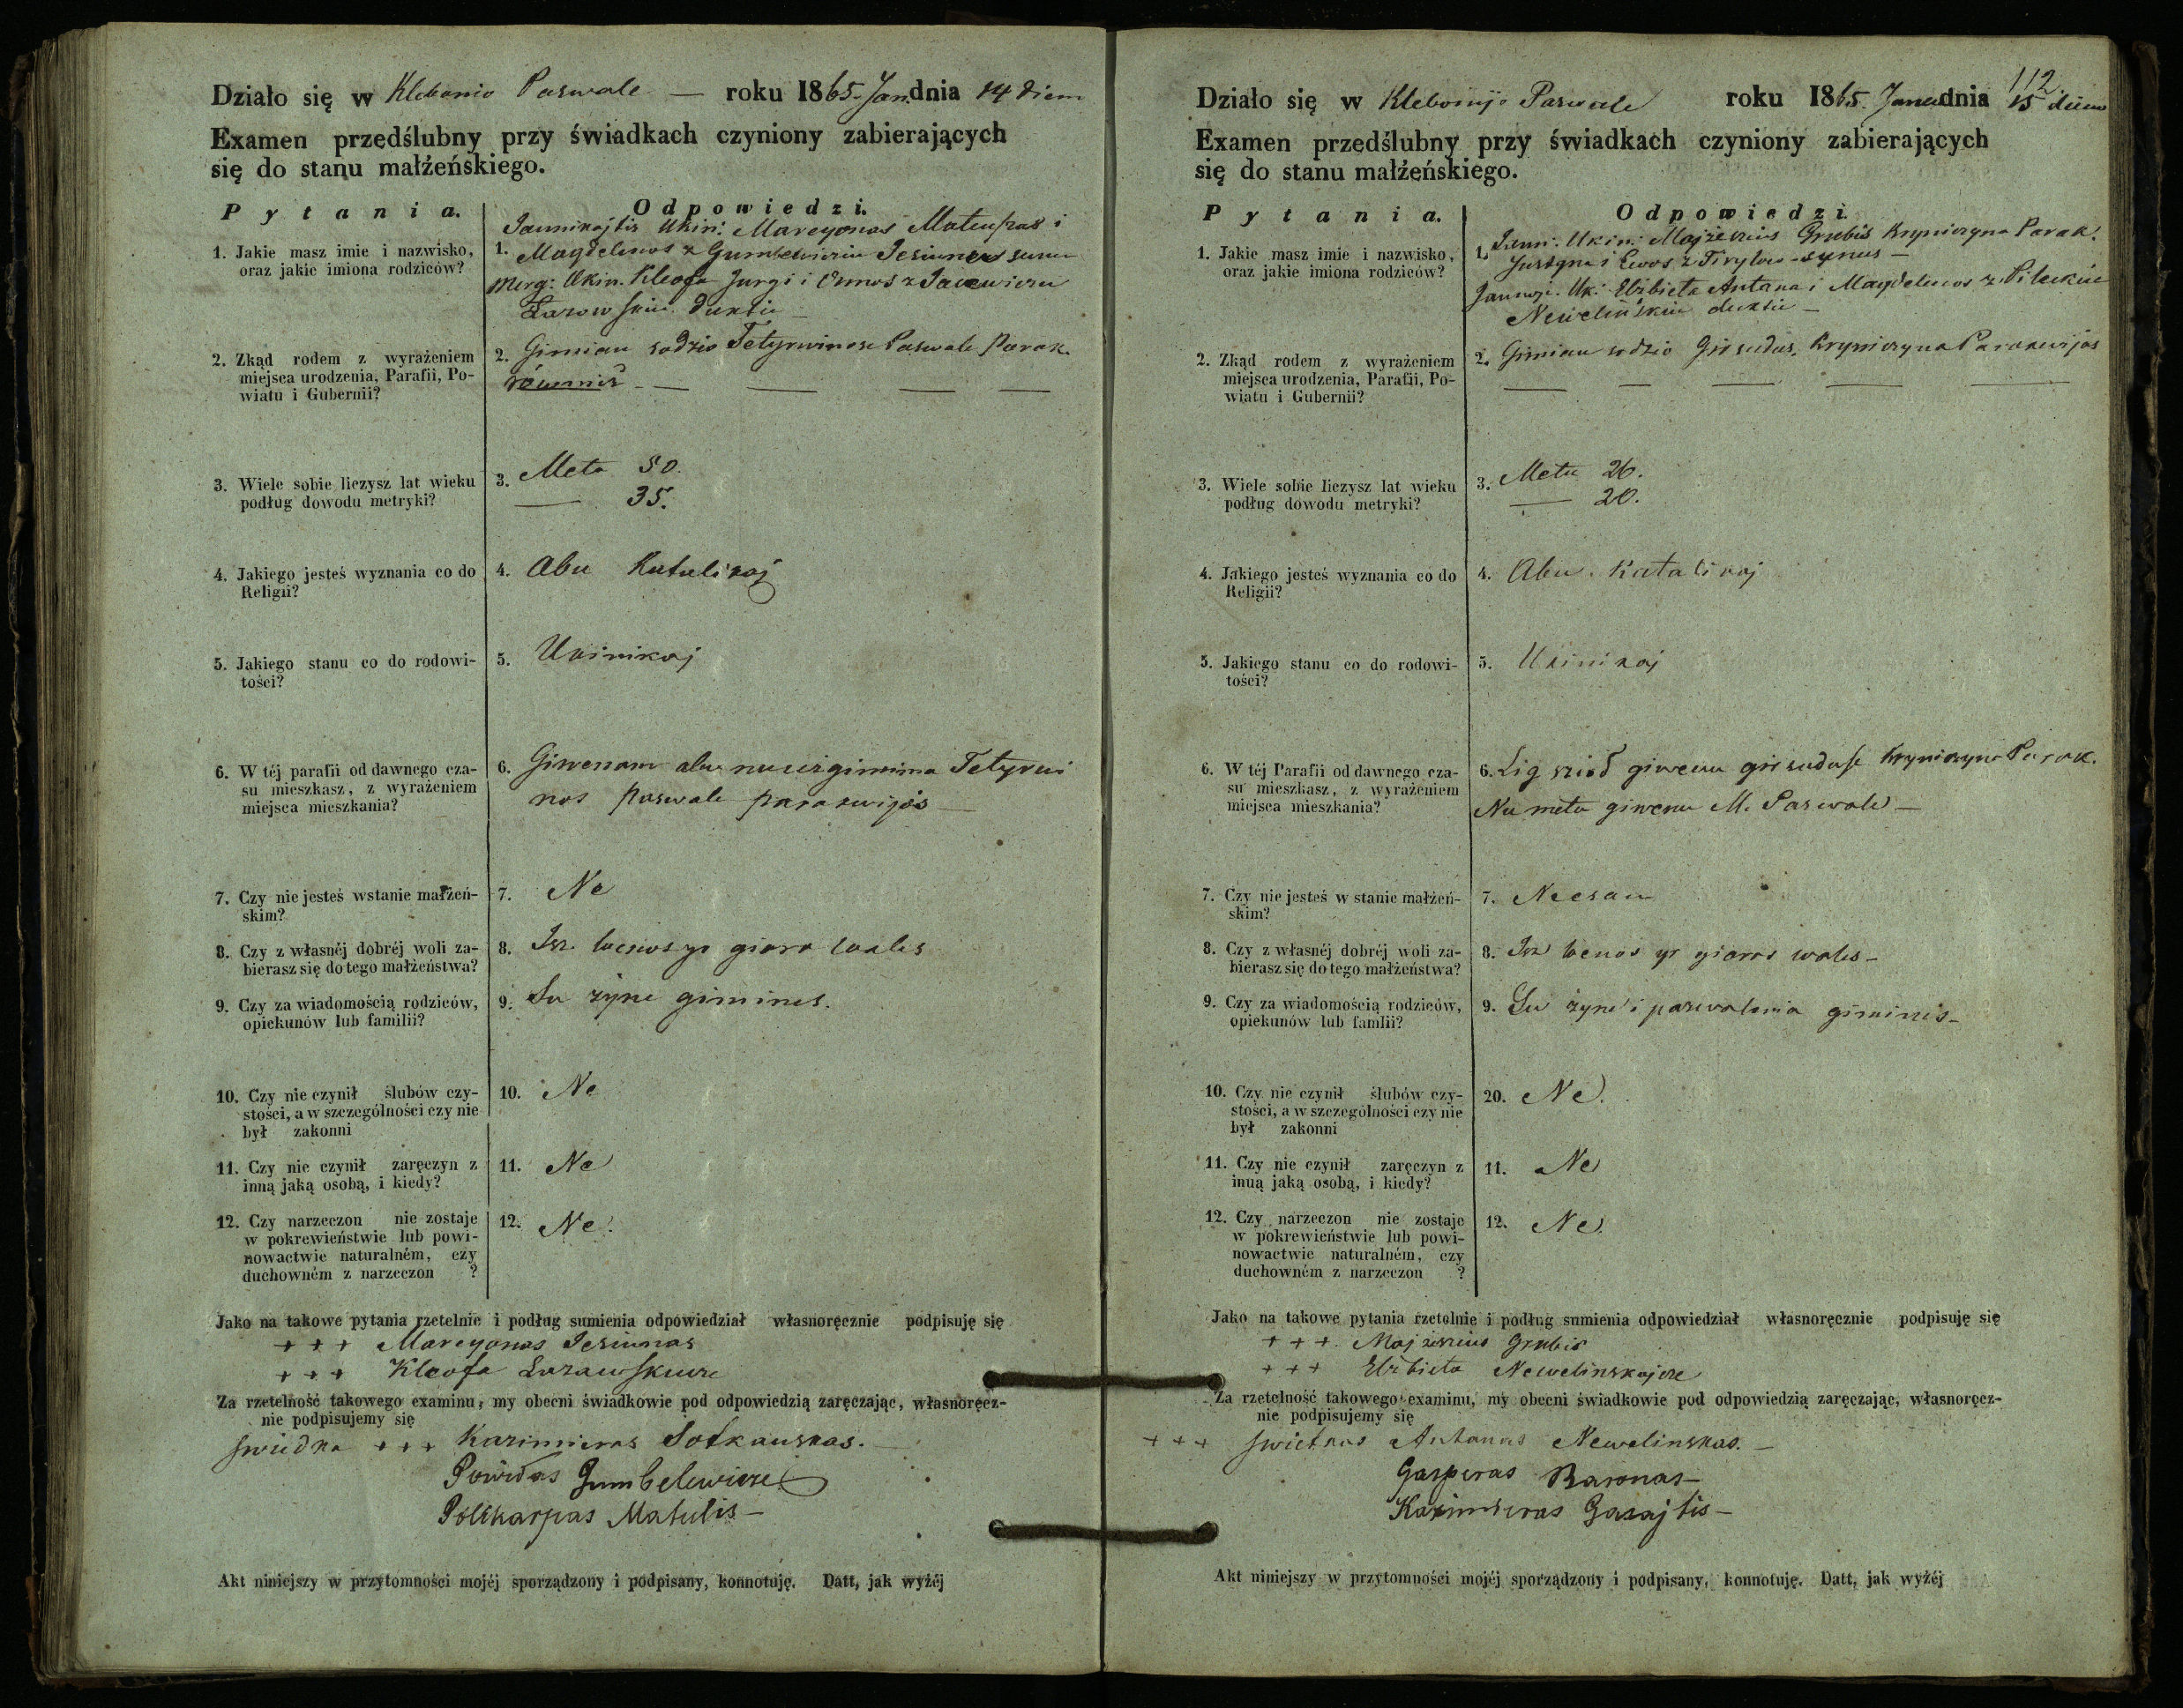 Działo się w Klebonio Paswale — roku 1865 Jan. dnia 14 diem
Examen przedślubny przy świadkach czyniony zabierających
się do stanu małżeńskiego.
Pytania.
Odpowiedzi.
1. Jakie masz imie i nazwisko,
oraz jakie imiona rodziców?
Jaunikajtis Ukin: Mareyonas Mateuszas i
1. Magdelenos z Gumbelewiczu Jesiunas sunus
Merg: Ukin. Kleofa Jurgi i Onnos z Jacewiczu
Łazowskiu duktie —
2. Zkąd rodem z wyrażeniem
miejsca urodzenia, Parafii, Po-
wiatu i Gubernii?
2. Gimiau sodzio Tetyrwinose Paswale Parak.
również — — — —
3. Wiele sobie liczysz lat wieku
podług dowodu metryki?
3. Meta 50.
— 35.
4. Jakiego jesteś wyznania co do
Religii?
4. Abu Katalikaj
5. Jakiego stanu co do rodowi-
tości?
5. Ukinikaj
6. W téj parafii od dawnego cza-
su mieszkasz, z wyrażeniem
miejsca mieszkania?
6. Giwenam abu nu uzgimima Tetyrwi
nos paswale parakwijos —
7. Czy nie jesteś wstanie małżeń-
skim?
7. Ne
8. Czy z własnéj dobréj woli za-
bierasz się do tego małżeństwa?
8. Isz wenos yr giaros wales
9. Czy za wiadomością rodziców,
opiekunów lub familii?
9. Su zyne gimines.
10. Czy nie czynił ślubów czy-
stości, a w szczególności czy nie
był zakonni
10. Ne
11. Czy nie czynił zaręczyn z
inną jaką osobą, i kiedy?
11. Ne
12. Czy narzeczon nie zostaje
w pokrewieństwie lub powi-
nowactwie naturalném, czy
duchowném z narzeczon ?
12. Ne.
Jako na takowe pytania rzetelnie i podług sumienia odpowiedział własnoręcznie podpisuję się
+ + + Mareyonas Jesiunas
+ + + Kleofa Łazawskiute
Za rzetelność takowego examinu, my obecni świadkowie pod odpowiedzią zaręczając, własnoręcz-
nie podpisujemy się
+ + + Kazimieras Sotkauskas.
Powiłas Gumbelewicze
Polikarpas Matulis —
Akt niniejszy w przytomności mojéj sporządzony i podpisany, konnotuję. Datt, jak wyżéj
112
Działo się w Klebonijo Paswale roku 1865. Janua dnia 15 diena
Examen przedślubny przy świadkach czyniony zabierających
się do stanu małżeńskiego.
Pytania.
Odpowiedzi.
1. Jakie masz imie i nazwisko,
oraz jakie imiona rodziców?
1. Jaun: Ukin: Majżeszius Grubis Kryniczyna Parak.
Justyna i Ewos z sunus —
Ukin: Elżbieta Antana i Magdelenos z Pileckiu
Newelinskiu duktie —
2. Zkąd rodem z wyrażeniem
miejsca urodzenia, Parafii, Po-
wiatu i Gubernii?
2. Gimiau sodzio Girsudus. Kryniczyna Parakwijos
— — — — —
3. Wiele sobie liczysz lat wieku
podług dowodu metryki?
3. Metu 26.
— 20.
4. Jakiego jesteś wyznania co do
Religii?
4. Abu. Katalikaj
5. Jakiego stanu co do rodowi-
tości?
5. Ukinikaj
6. W téj Parafii od dawnego cza-
su mieszkasz, z wyrażeniem
miejsca mieszkania?
6. Lig sziod giwenu girsuduse Kryniczyna Parak.
Nu metu giwenu M. Paswale —
7. Czy nie jesteś w stanie małżeń-
skim?
7. Neesam
8. Czy z własnéj dobréj woli za-
bierasz się do tego małżeństwa?
8. Isz wenos yr giaros wales —
9. Czy za wiadomością rodziców,
opiekunów lub famlii?
9. Su zyne i paswalima gimines —
10. Czy nie czynił ślubów czy-
stości, a w szczególności czy nie
był zakonni
20. Ne.
11. Czy nie czynił zaręczyn z
inną jaką osobą, i kiedy?
11. Ne
12. Czy narzeczon nie zostaje
w pokrewieństwie lub powi-
nowactwie naturalném, czy
duchowném z narzeczon ?
12. Ne.
Jako na takowe pytania rzetelnie i podług sumienia odpowiedział własnoręcznie podpisuję się
+ + + Majżeszius Grubis
+ + + Elżbieta Newelinskajte
Za rzetelność takowego examinu, my obecni świadkowie pod odpowiedzią zaręczając, własnoręcz-
nie podpisujemy się
+ + + swietkas Antanas Newelinskas. —
Gasperas Baronas —
Kazimieras Gasajtis —
Akt niniejszy w przytomności mojéj sporządzony i podpisany, konnotuję. Datt, jak wyżéj